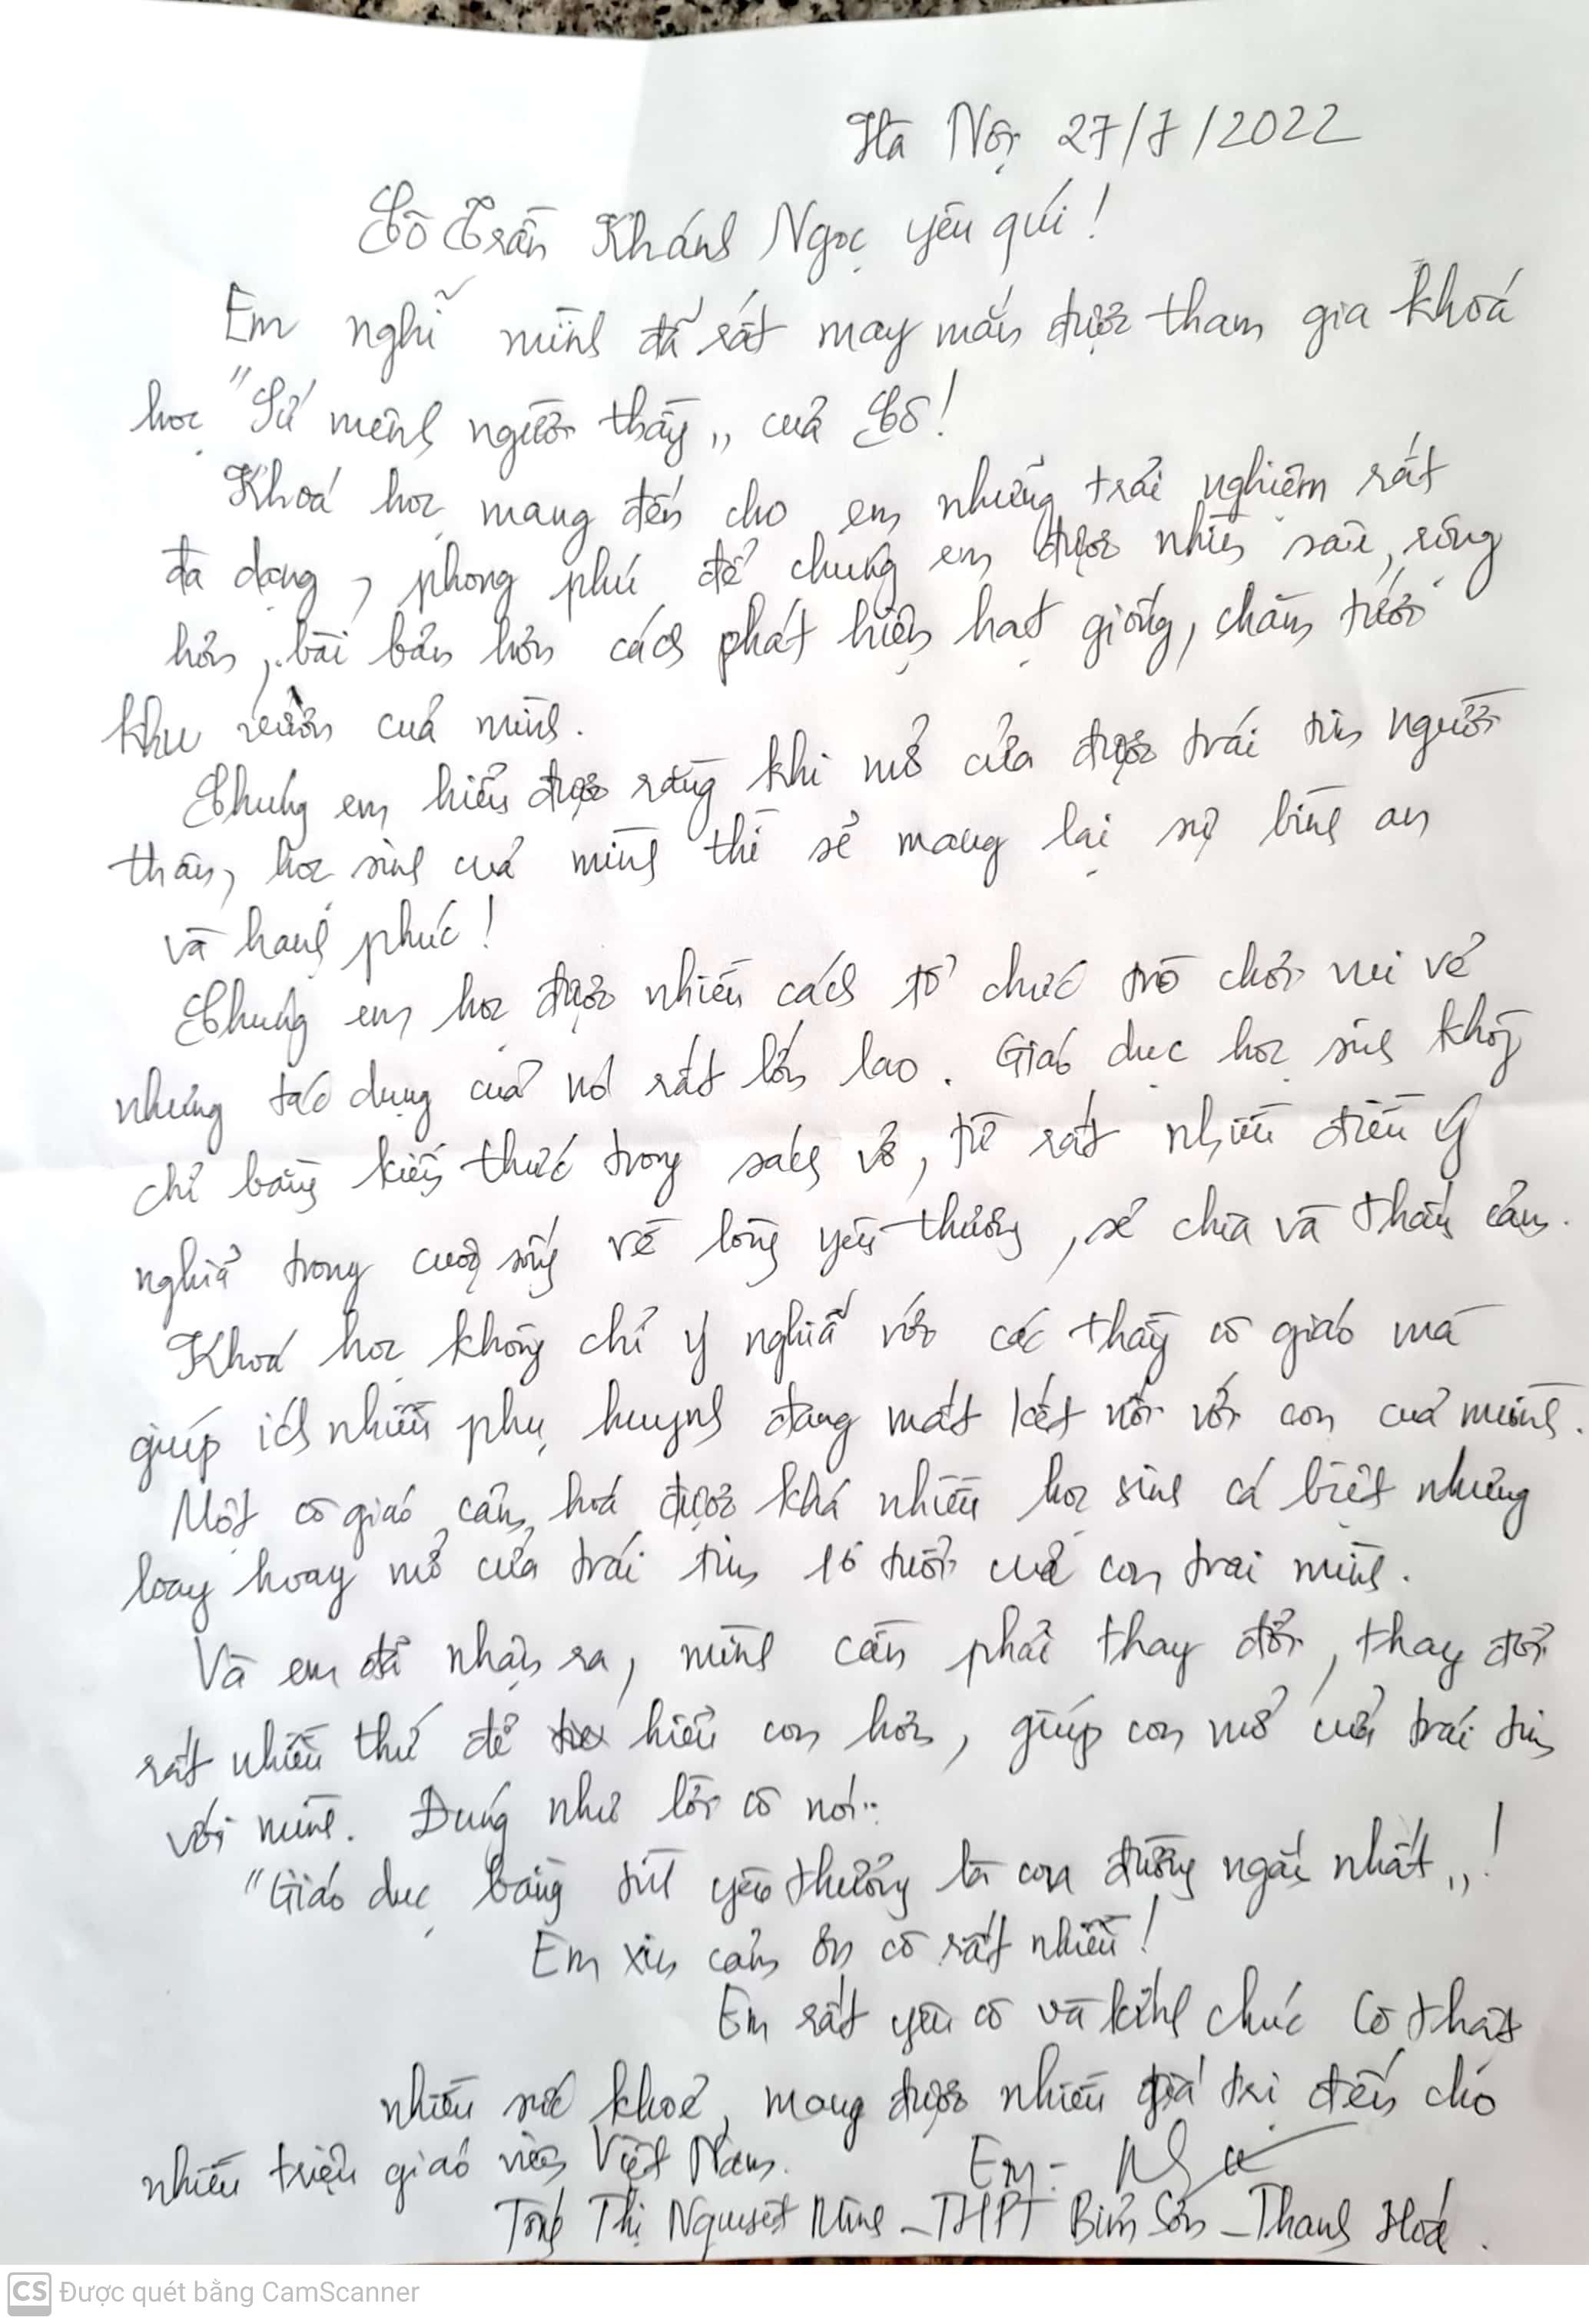 Hà Nội 27/7/2022
Cô Trần Khánh Ngọc yêu quí!
Em nghĩ mình đã rất may mắn được tham gia khoá
học "Sứ mệnh người thầy" của Cô!
Khoá học mang đến cho em những trải nghiệm rất
đa dạng, phong phú để chúng em được nhìn sâu, rộng
hơn, bài bản hơn cách phát hiện hạt giống, chăm tưới
khu vườn của mình.
Chúng em hiểu được rằng khi mở cửa được trái tim người
thân, học sinh của mình thì sẽ mang lại sự bình an
và hạnh phúc!
Chúng em học được nhiều cách tổ chức trò chơi vui vẻ
nhưng tác dụng của nó rất lớn lao. Giáo dục học sinh không
chỉ bằng kiến thức trong sách vở, từ rất nhiều điều ý
nghĩa trong cuộc sống về lòng yêu thương, sẻ chia và thấu cảm.
Khoá học không chỉ ý nghĩa với các thầy cô giáo mà
giúp ích nhiều phụ huynh đang mất kết nối với con của mình.
Một cô giáo cảm hoá được khá nhiều học sinh cá biệt nhưng
loay hoay mở cửa trái tim 16 tuổi của con trai mình.
Và em đã nhận ra, mình cần phải thay đổi, thay đổi
rất nhiều thứ để hiểu con hơn, giúp con mở cửa trái tim
với mình. Đúng như lời cô nói:
"Giáo dục bằng tình yêu thương là con đường ngắn nhất"!
Em xin cảm ơn cô rất nhiều!
Em rất yêu cô và kính chúc Cô thật
nhiều sức khoẻ, mang được nhiều giá trị đến cho
nhiều triệu giáo viên Việt Nam. Em:
Tống Thị Nguyệt Minh - THPT Bỉm Sơn - Thanh Hoá.
CS Được quét bằng CamScanner